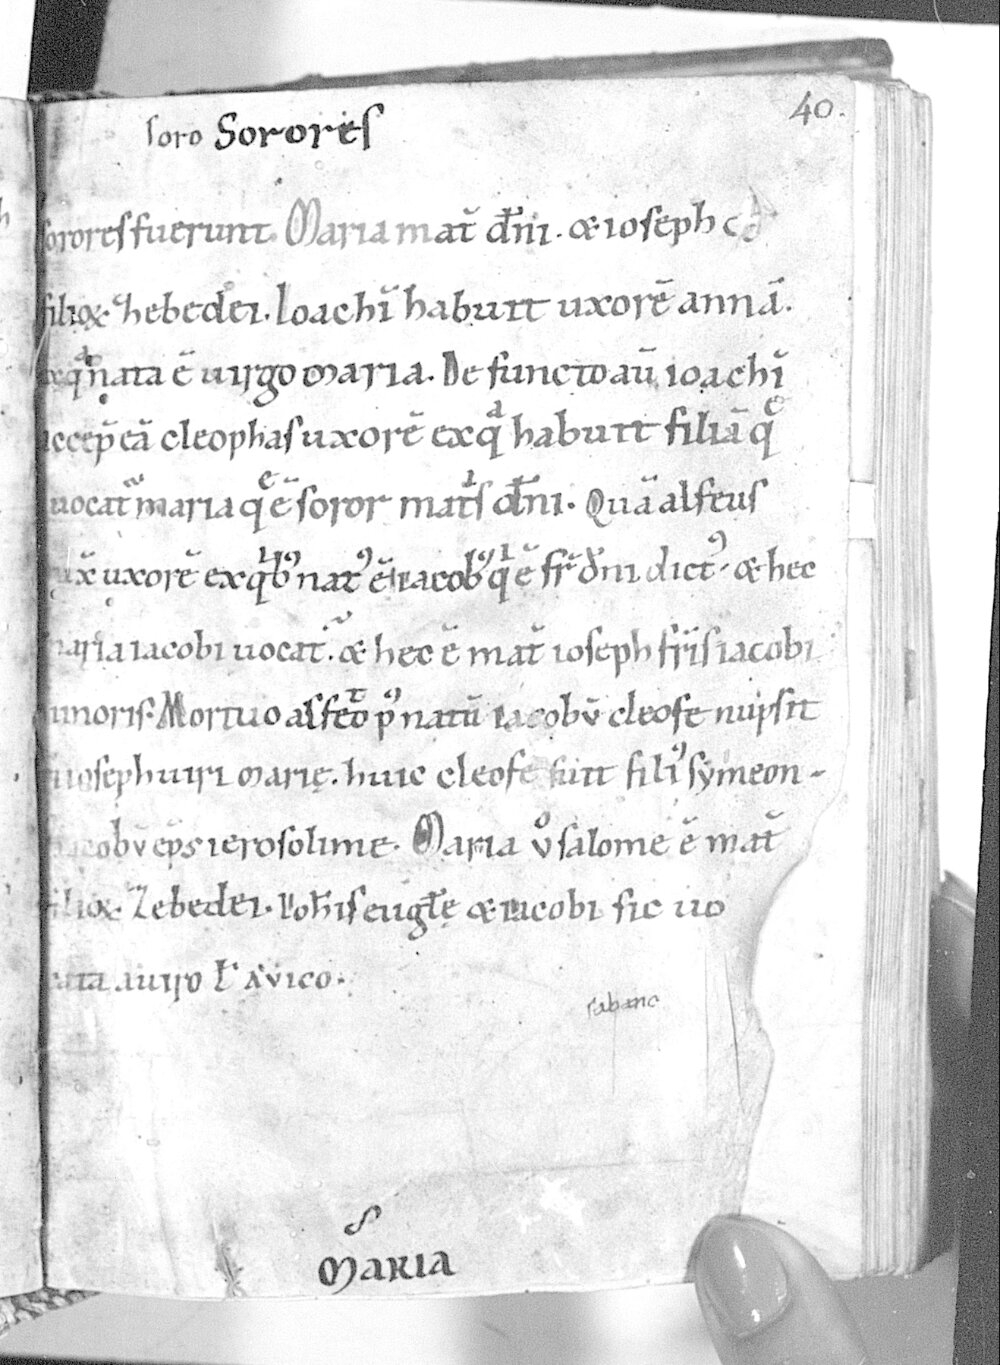 40.
soro Sorores
sorores fuerunt. Maria mat̄ dn̄i. & ioseph
filioꝝ. Zhebedei. Ioachī habuit uxorē annā.
exqᵃ nata ē uirgo maria. Defuncto aū ioachī
accep̄ eā cleophas uxorē exqᵃ habuit filiā q̄
uocat᷑ maria q̄ ē soror mat̄s dn̄i. Quā alfeus
dux̄ uxorē exqⁱbꝰ natꝰ ē iacobꝰ qⁱ ē fr̄ dn̄i dictꝰ. & hec
maria iacobi uocat᷑. & hec ē mat̄ ioseph fr̄is iacobi
minoris. Mortuo alfeo pꝰ natū iacobū cleofe nupsit
ioseph uiri marię. huic cleofe fuit filiꝰ symeon-
iacobū ep̄s ierosolime. Maria v̊ salome ē mat̄
filioꝝ. Zebedei. Ioh̄is euḡlę & iacobi sic uo
cata auiro ł auico.
rabano
S
MARIA